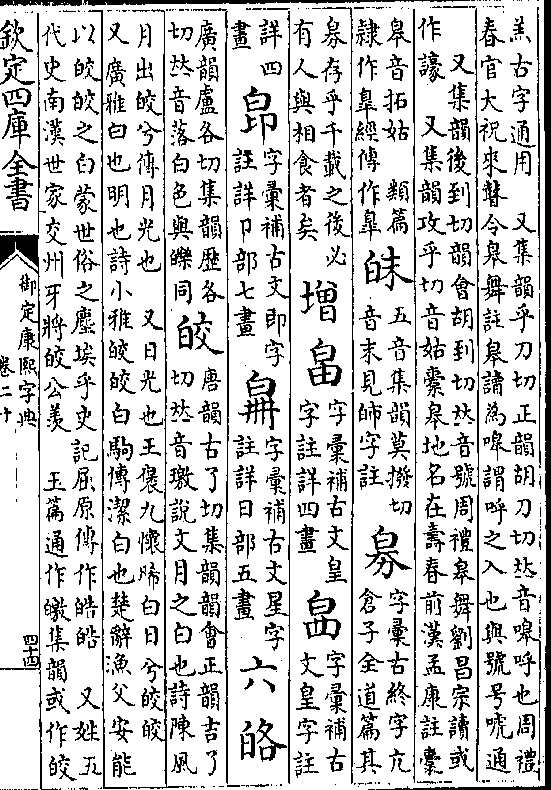 羔古字通用　又集韻乎刀切正韻胡刀切𠀤音嘷呼也周禮
春官大祝來瞽令皋舞註皋讀為嘷謂呼之入也與號号唬通
又集韻後到切韻會胡到切𠀤音號周禮皋舞劉昌宗讀或
作譹　又集韻攻乎切音姑櫜皋地名在壽春前漢孟康註櫜
皋音拓姑　類篇
隷作臯經傳作臯
𥅘
五音集韻莫撥切
音末見師字註
㿝
字彙古終字亢
倉子全道篇其
㿝存乎千載之後必
有人與相食者矣
增
畠
字彙補古文皇
字註詳四畫
𤽚
字彙補古
文皇字註
詳四
畫
皍
字彙補古文即字
註詳卩部七畫
𤽦
字彙補古文星字
註詳日部五畫
六
㿟
廣韻盧各切集韻歷各
切𠀤音落白色與皪同
皎
唐韻古了切集韻韻會正韻吉了
切𠀤音璬說文月之白也詩陳風
月出皎兮傳月光也　又日光也王褒九懷晞白日兮皎皎
又廣雅白也明也詩小雅皎皎白駒傳潔白也楚辭漁父安能
以皎皎之白蒙世俗之塵埃乎史記屈原傳作皓皓　又姓五
代史南漢世家交州牙將皎公羨　玉篇通作皦集韻或作皎
欽定四庫全書
御定康熙字典
卷二十
四十四